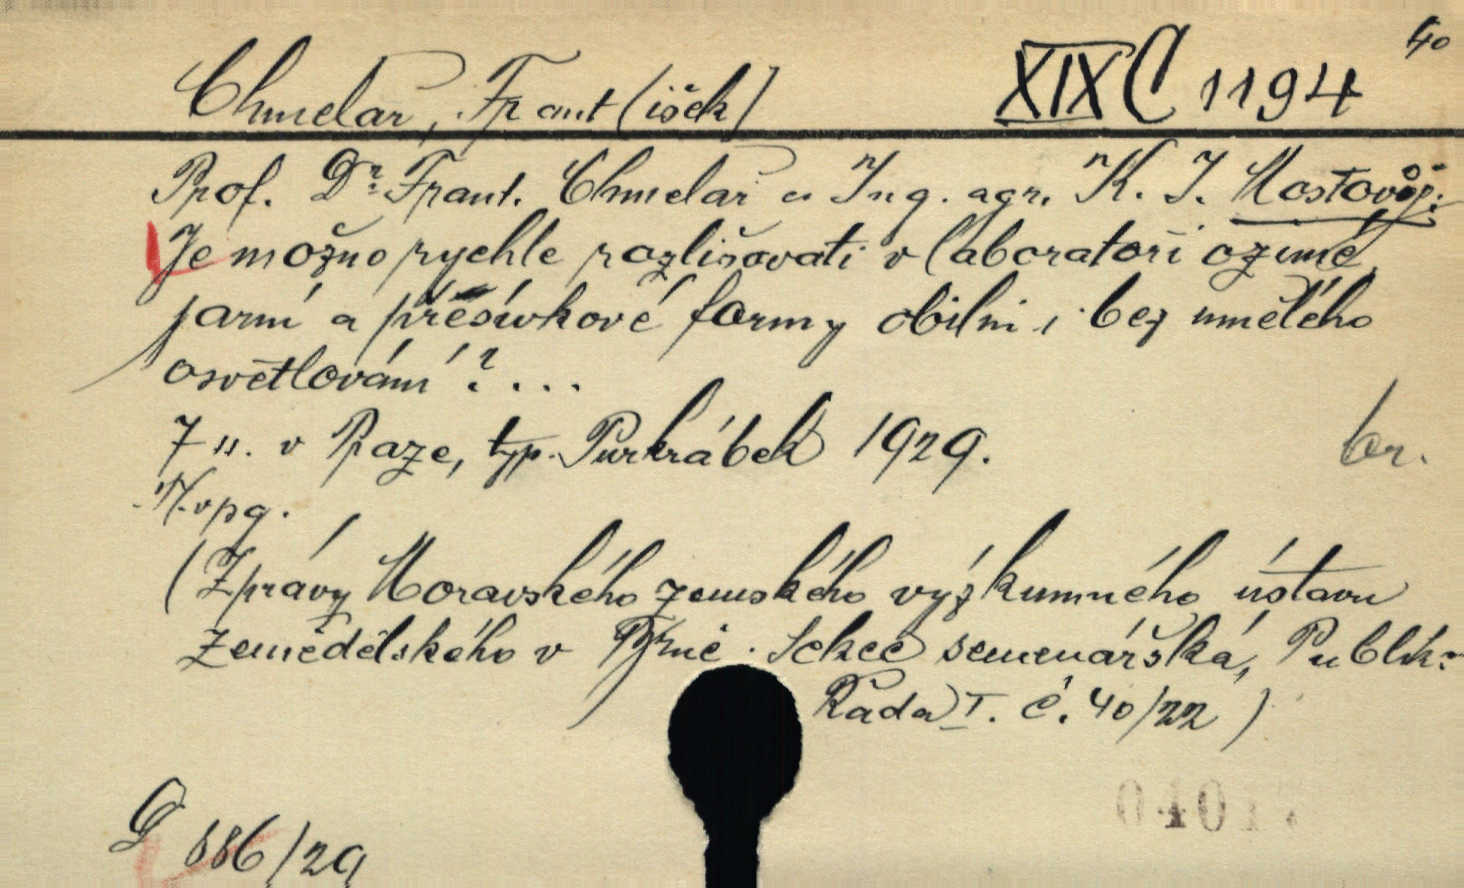 40
Chmelař, Frant(išek) XIX C 1194
Prof. Dr. Frant. Chmelař a Ing. agr. K. J. Mostovoj:
Je možno rychle rozlišovati v laboratoři ozimé,
jarní a přesívkové formy obilnin i bez umělého
osvětlování? ...
7 s. v Praze, typ. Purkrábek 1929. br.
N. vpg.
(Zprávy Moravského zemského výzkumného ústavu
zemědělského v Brně. Sekce semenářská, Publik.
Řada I. č. 40/22)
0401
G 886/29